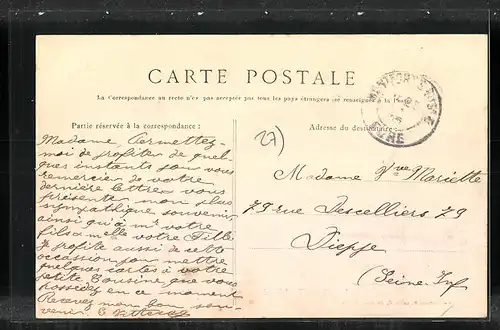 CARTE POSTALE
La Correspondance au recto n'est pas acceptée par tous les pays étrangers (se renseigner à la Poste)
Partie réservée à la correspondance :
Adresse du destinataire
MONTFORT S RISLE
EURE
27)
Madame, Permettez
moi de profiter de quel-
ques instants pour vous
remercier de votre
dernière lettre vous
présente mon plus
sympathique souvenir
ainsi qu'à Mr votre
fils & melle votre Fille
Je profite aussi de cette
occasion pour mettre
quelques cartes à votre
petite Cousine que vous
possédez en ce moment
Recevez mon bon sou-
venir
Madame Vve Mariette
79 rue Descelliers 79
Dieppe
Seine Inf